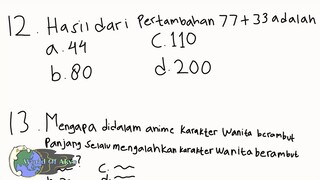 12. Hasil dari Pertambahan 77+33 adalah
a. 44 C. 110
b. 80 d. 200
13. Mengapa didalam anime karakter wanita berambut
Panjang Selalu mengalahkan karakter wanita berambut
?
C.